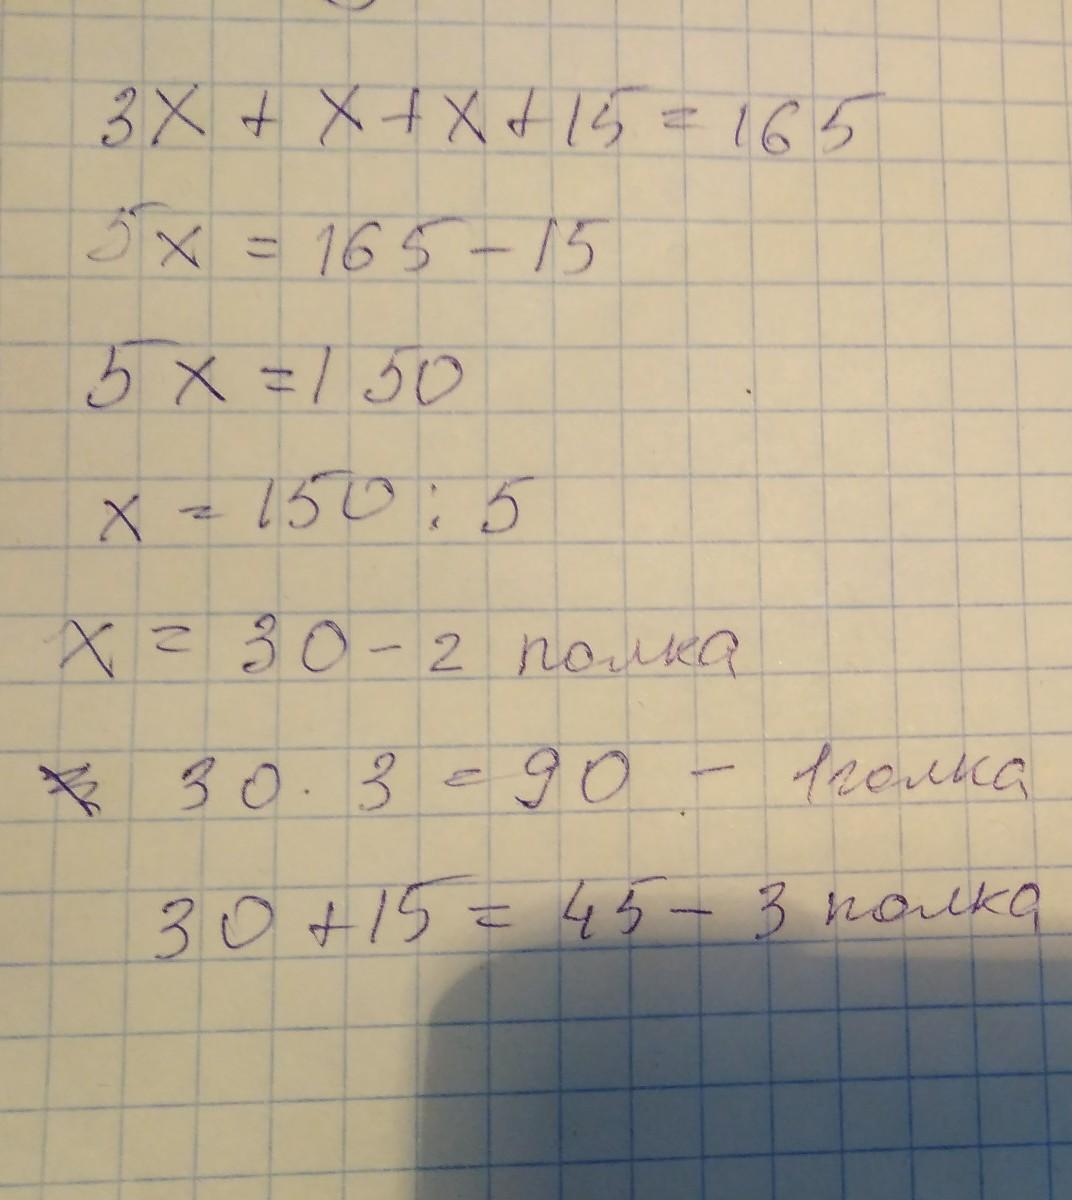 3x + x + x + 15 = 165
5x = 165 - 15
5x = 150
x = 150 : 5
x = 30 - 2 полка
30 · 3 = 90 - 1 полка
30 + 15 = 45 - 3 полка